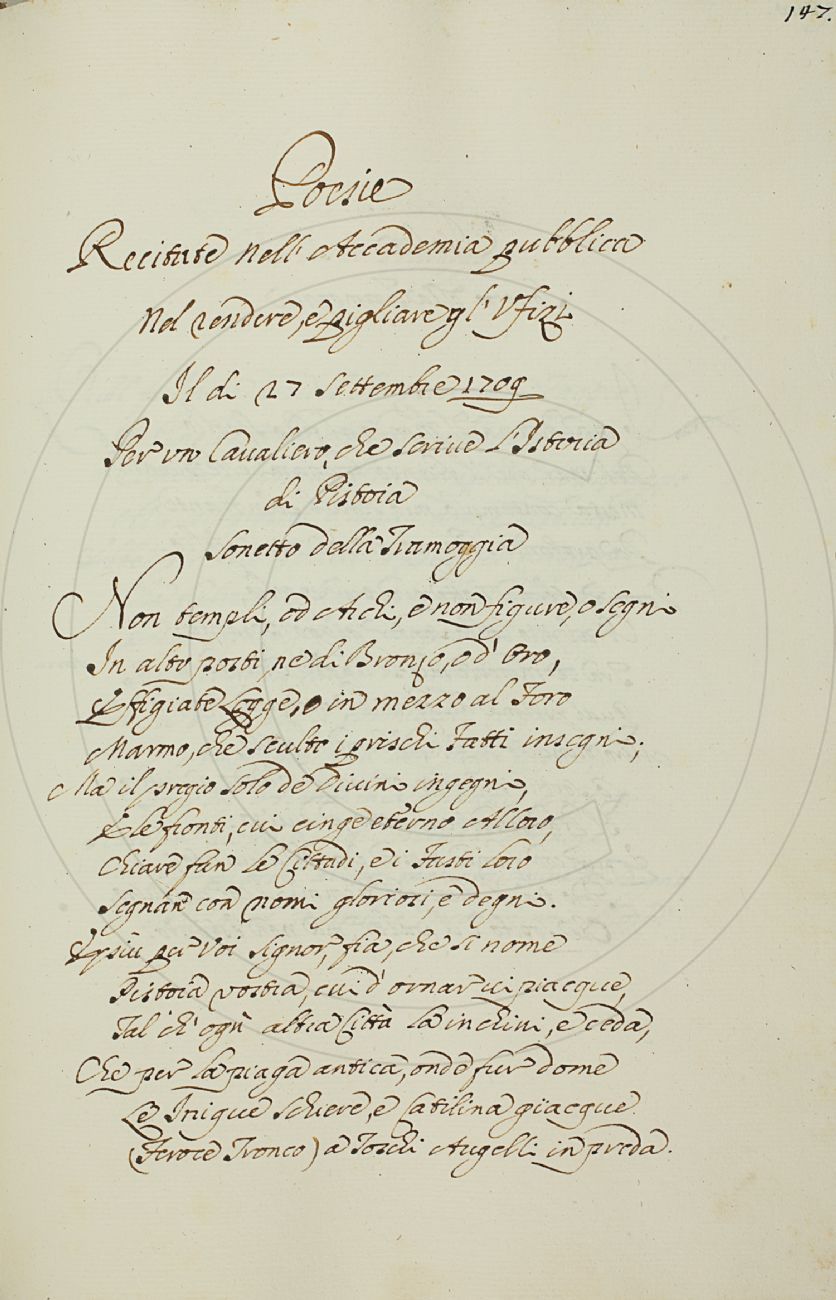 147.
Poesie
Recitate nell' Accademia pubblica
Nel rendere, e pigliare gl' Ufizi
Il di 27 Settembre 1709
Per un Cavaliero, che scrive l'Istoria
di Pistoia
Sonetto della Tramoggia
Non templi, od Archi, e non figure, o segni
In alto posti, ne di Bronzo, o d' Oro,
Effigiate Logge, o in mezzo al Foro
Marmo, che sculto i prischi Fatti insegni;
Ma il pregio solo de Divini ingegni,
E le fronti, cui cinge eterno Alloro,
Chiare fan le Cittadi, e i Fasti loro
Segnan con nomi gloriosi, e degni.
E più per Voi Signor, fia, che si nome
Pistoia vostra, cui d' ornar vi piacque,
Tal ch' ogn' altra Città la inchini, e ceda,
Che per la piaga antica, onde fur dome
Le Inique schiere, e Catilina giacque
(Feroce Tronco) a Foschi Augelli in preda.